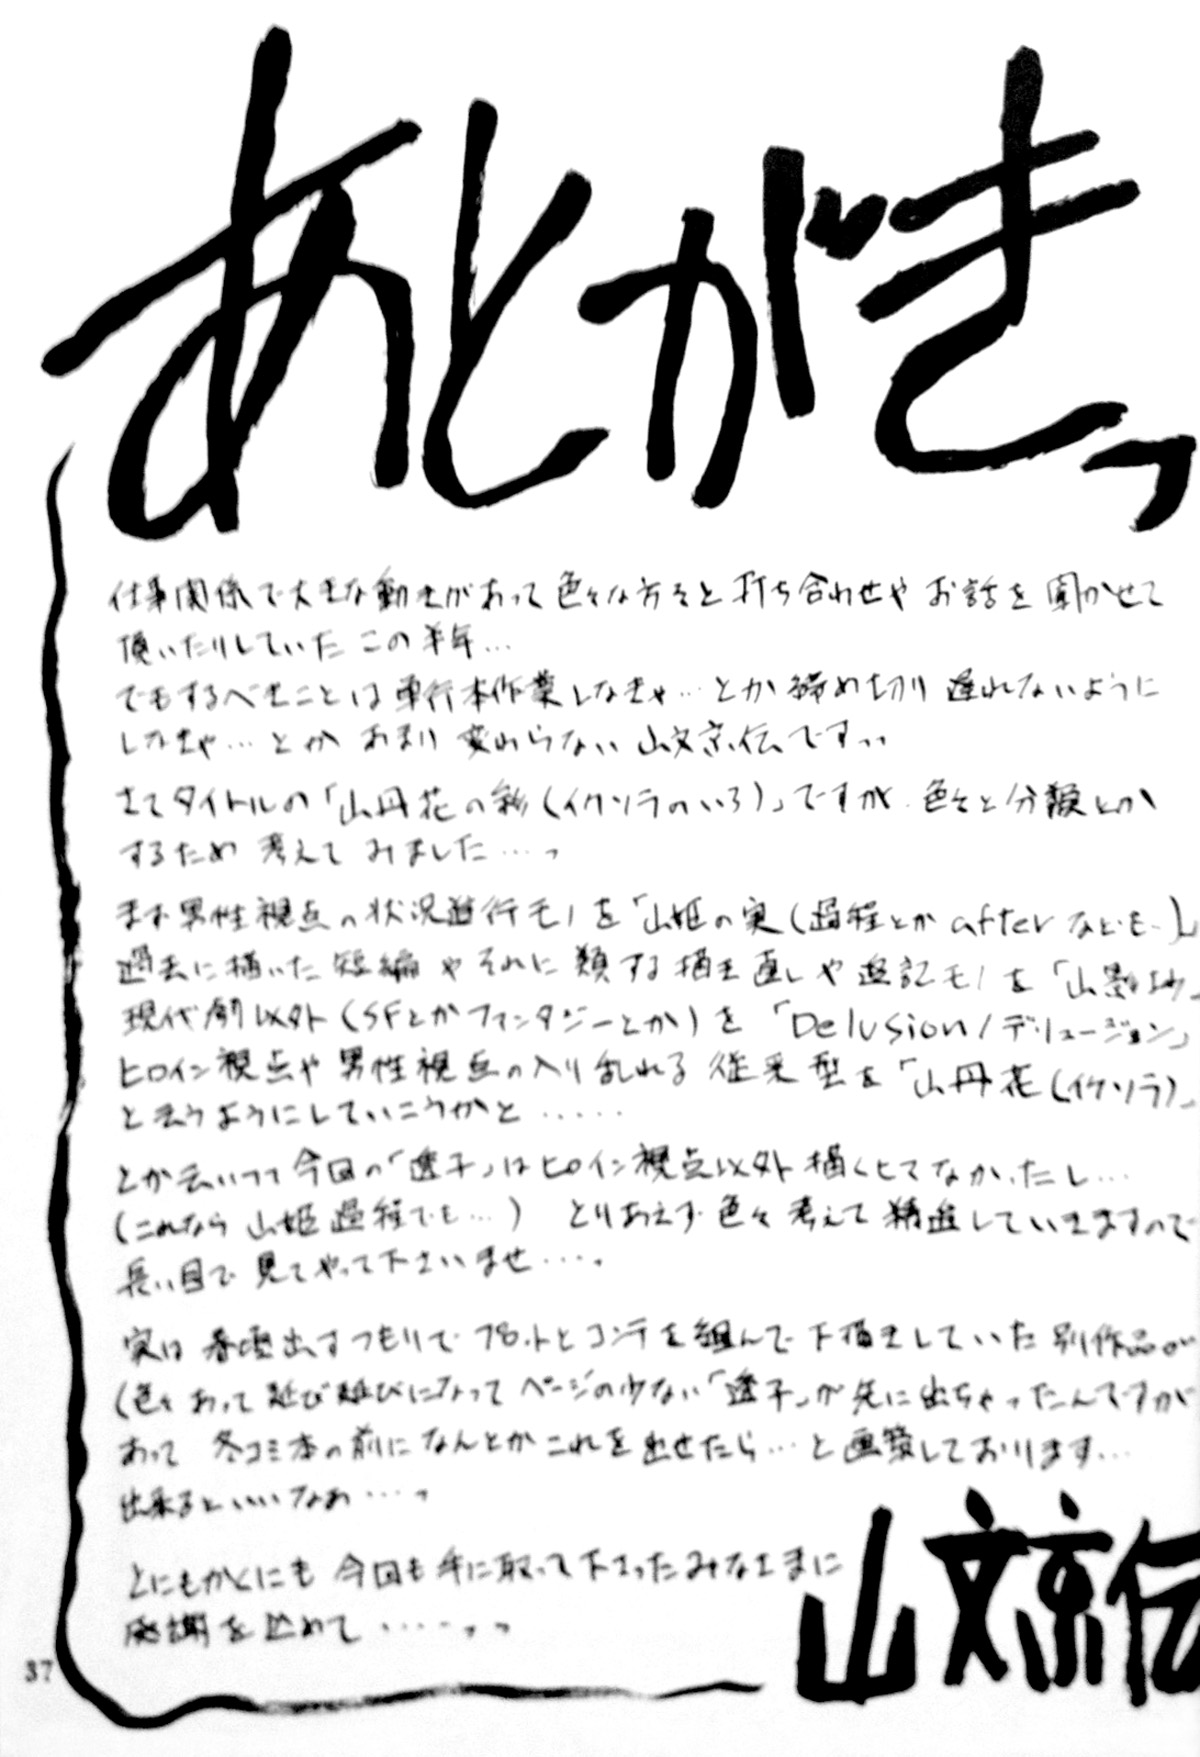 あとがきっ
仕事関係で大きな動きがあって色々な方々と打ち合わせやお話を聞かせて
頂いたりしていたこの半年…
でもするべきことは単行本作業しなきゃ…とか締め切り遅れないように
しなきゃ…とかあまり変わらない山文京伝ですっっ
さてタイトルの「山丹花の彩(イクソラのいろ)」ですが、色々と分類とか
するため考えてみました……っ
まず男性視点の状況進行モノを「山姫の実(過程とかafterなども…)」
過去に描いた短編やそれに類する描き直しや追記モノを「山影抄」
現代劇以外(SFとかファンタジーとか)を「Delusion/デリュージョン」
ヒロイン視点や男性視点の入り乱れる従来型を「山丹花(イクソラ)」
と云うようにしていこうかと……
とか云いつつ今回の「透子」はヒロイン視点以外描くヒマなかったし…
(これなら山姫過程でも…) とりあえず色々考えて精進していきますので
長い目で見てやって下さいませ……。
実は春頃出すつもりでプロットとコンテを組んで下描きしていた別作品が
(色々あって延び延びになってページの少ない「透子」が先に出ちゃったんですが
あって 冬コミ本の前になんとかこれを出せたら…と画策しております…
出来るといいなぁ……っ
とにもかくにも今回も手に取って下さったみなさまに
感謝を込めて……っっ
山文京伝
37